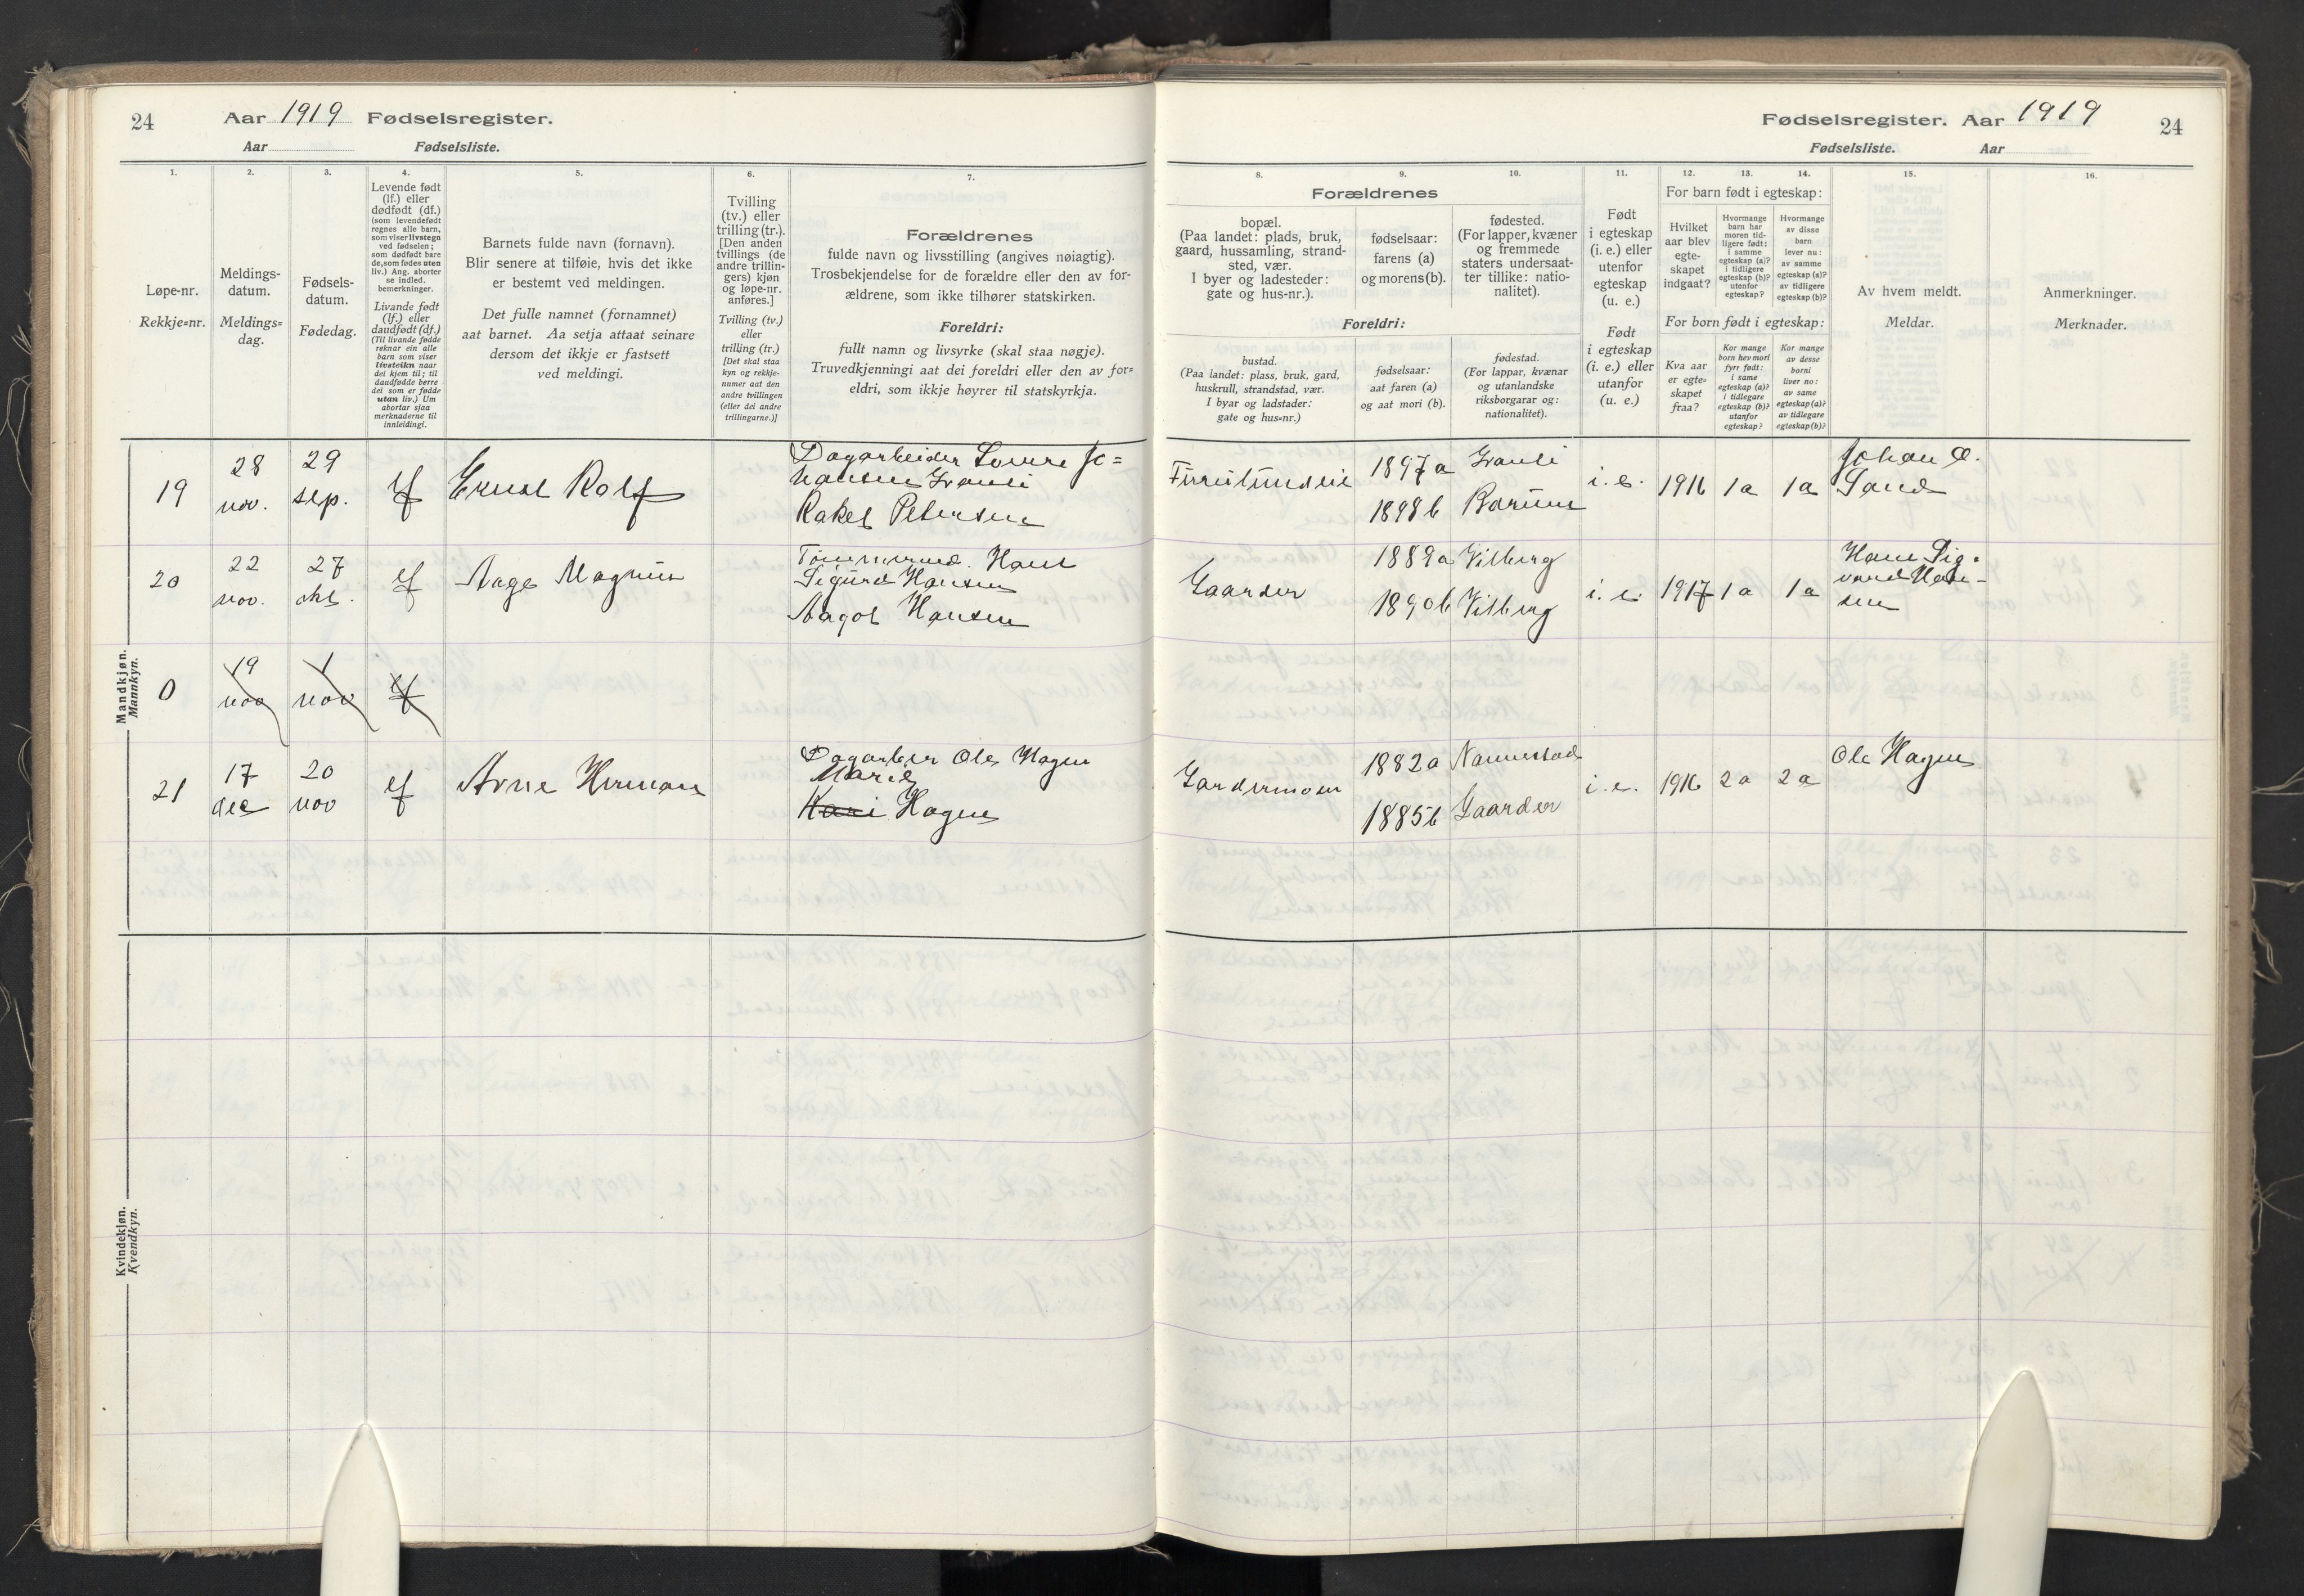 24
Aar 1919 Fødselsregister.
Aar Fødselsliste.
1.
2.
3.
4.
5.
6.
7.
Løpe-nr.
Rekkje=nr.
Meldings-
datum.
Meldings=
dag.
Fødsels-
datum.
Fødedag.
Levende født
(lf.) eller
dødfødt (df.)
(som levendefødt
regnes alle barn,
som viser livstegn
ved fødselen;
som dødfødt bare
de, som fødes uten
liv.) Ang. aborter
se indled.
bemerkninger.
Livande født
(lf.) eller
daudfødt (df.)
(Til livande fødde
reknar ein alle
barn som viser
livsteikn naar
dei kjem til; til
daudfødde berre
dei som er fødde
utan liv.) Um
abortar sjaa
merknaderne til
innleidingi.
Barnets fulde navn (fornavn).
Blir senere at tilføie, hvis det ikke
er bestemt ved meldingen.
Det fulle namnet (fornamnet)
aat barnet. Aa setja attaat seinare
dersom det ikkje er fastsett
ved meldingi.
Tvilling
(tv.) eller
trilling (tr.).
[Den anden
tvillings (de
andre trillin-
gers) kjøn
og løpe-nr.
anføres.]
Tvilling (tv.)
eller
trilling (tr.)
[Det skal staa
kyn og rekkje-
numer aat den
andre tvillingen
(eller dei andre
trillingarne.)]
Forældrenes
fulde navn og livsstilling (angives nøiagtig).
Trosbekjendelse for de forældre eller den av for-
ældrene, som ikke tilhører statskirken.
Foreldri:
fullt namn og livsyrke (skal staa nøgje).
Truvedkjenningi aat dei foreldri eller den av for=
eldri, som ikkje høyrer til statskyrkja.
Mandkjøn.
Mannkyn.
19
28
nov.
29
sep.
lf
Ernst Rolf
Dagarbeider Jo=
hansen
Rakel Petersen
20
22
nov.
27
okt.
lf
Aage Magnus
Hans
Sigurd Hansen
Aagot Hansen
0
19
nov
1
nov
lf
21
17
dec
20
nov
lf
Arne Herman
Ole Hagen
Marie
Kari Hagen
Kvindekjøn.
Kvendkyn.
Fødselsregister. Aar 1919
Fødselsliste. Aar
24
8.
9.
10.
11.
12.
13.
14.
15.
16.
Forældrenes
bopæl.
(Paa landet: plads, bruk,
gaard, hussamling, strand-
sted, vær.
I byer og ladesteder:
gate og hus-nr.).
fødselsaar:
farens (a)
og morens (b).
fødested.
(For lapper, kvæner
og fremmede
staters undersaat-
ter tillike: natio-
nalitet).
Foreldri:
bustad.
(Paa landet: plass, bruk, gard,
huskrull, strandstad, vær.
I byar og ladstader:
gate og hus=nr.)
fødselsaar:
aat faren (a)
og aat mori (b).
fødestad.
(For lappar, kvænar
og utanlandske
riksborgarar og:
nationalitet).
Født
i egteskap
(i. e.) eller
utenfor
egteskap
(u. e.)
Født
i egteskap
(i. e.) eller
utanfor
egteskap
(u. e.)
For barn født i egteskap:
Hvilket
aar blev
egte-
skapet
indgaat?
Hvormange
barn har
moren tid-
ligere født:
i samme
egteskap (a)?
i tidligere
egteskap (b)?
utenfor
egteskap?
Hvormange
av disse
barn
lever nu:
av samme
egteskap (a)?
av tidligere
egteskap (b)?
For born født i egteskap:
Kva aar
er egte=
skapet
fraa?
Kor mange
born hev mori
fyrr født:
i same
egteskap (a)?
i tidlegare
egteskap (b)?
utanfor
egteskap?
Kor mange
av desse
borni
liver no:
av same
egteskap (a)?
av tidlegare
egteskap (b)?
Av hvem meldt.
Meldar.
Anmerkninger.
Merknader.
1897 a
1898 b Bærum
i. e. 1916 1a 1a
Johan
Gaarder
1889 a Vilberg
1890 b Vilberg
i. e. 1917 1 a 1 a
Hans Sig-
vard Han-
sen
Gardermoen
1882 a Nannestad
1885 b Gaarder
i. e. 1916 2 a 2 a
Ole Hagen